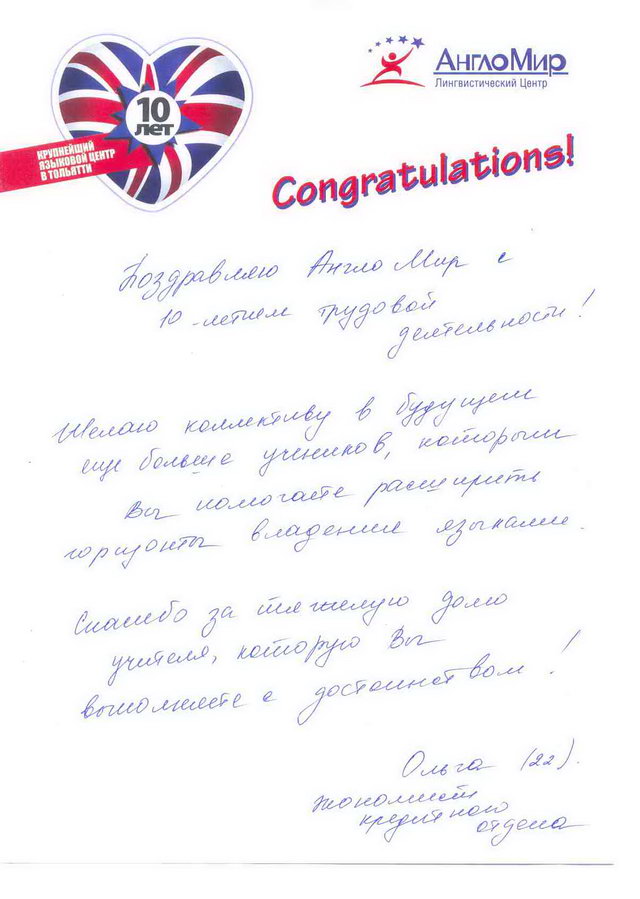 10
лет
КРУПНЕЙШИЙ
ЯЗЫКОВОЙ ЦЕНТР
В ТОЛЬЯТТИ
АнглоМир
Лингвистический Центр
Congratulations!
Поздравляю Англо Мир с
10-летием трудовой
деятельности!
Желаю коллективу в будущем
еще больше учеников, которым
Вы помогаете расширить
горизонты владения языками.
Спасибо за тяжелую долю
учителя, которую Вы
выполняете с достоинством!
Ольга (22).
экономист
кредитного
отдела